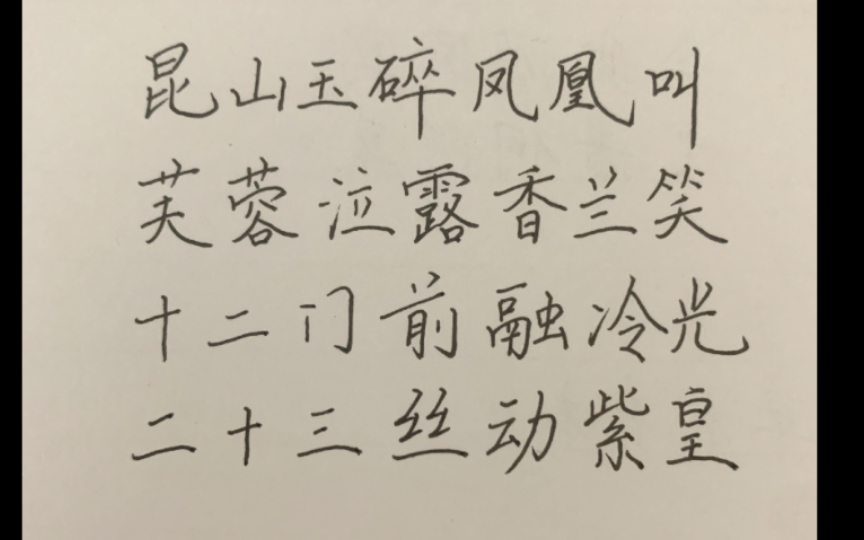 昆山玉碎凤凰叫
芙蓉泣露香兰笑
十二门前融冷光
二十三丝动紫皇